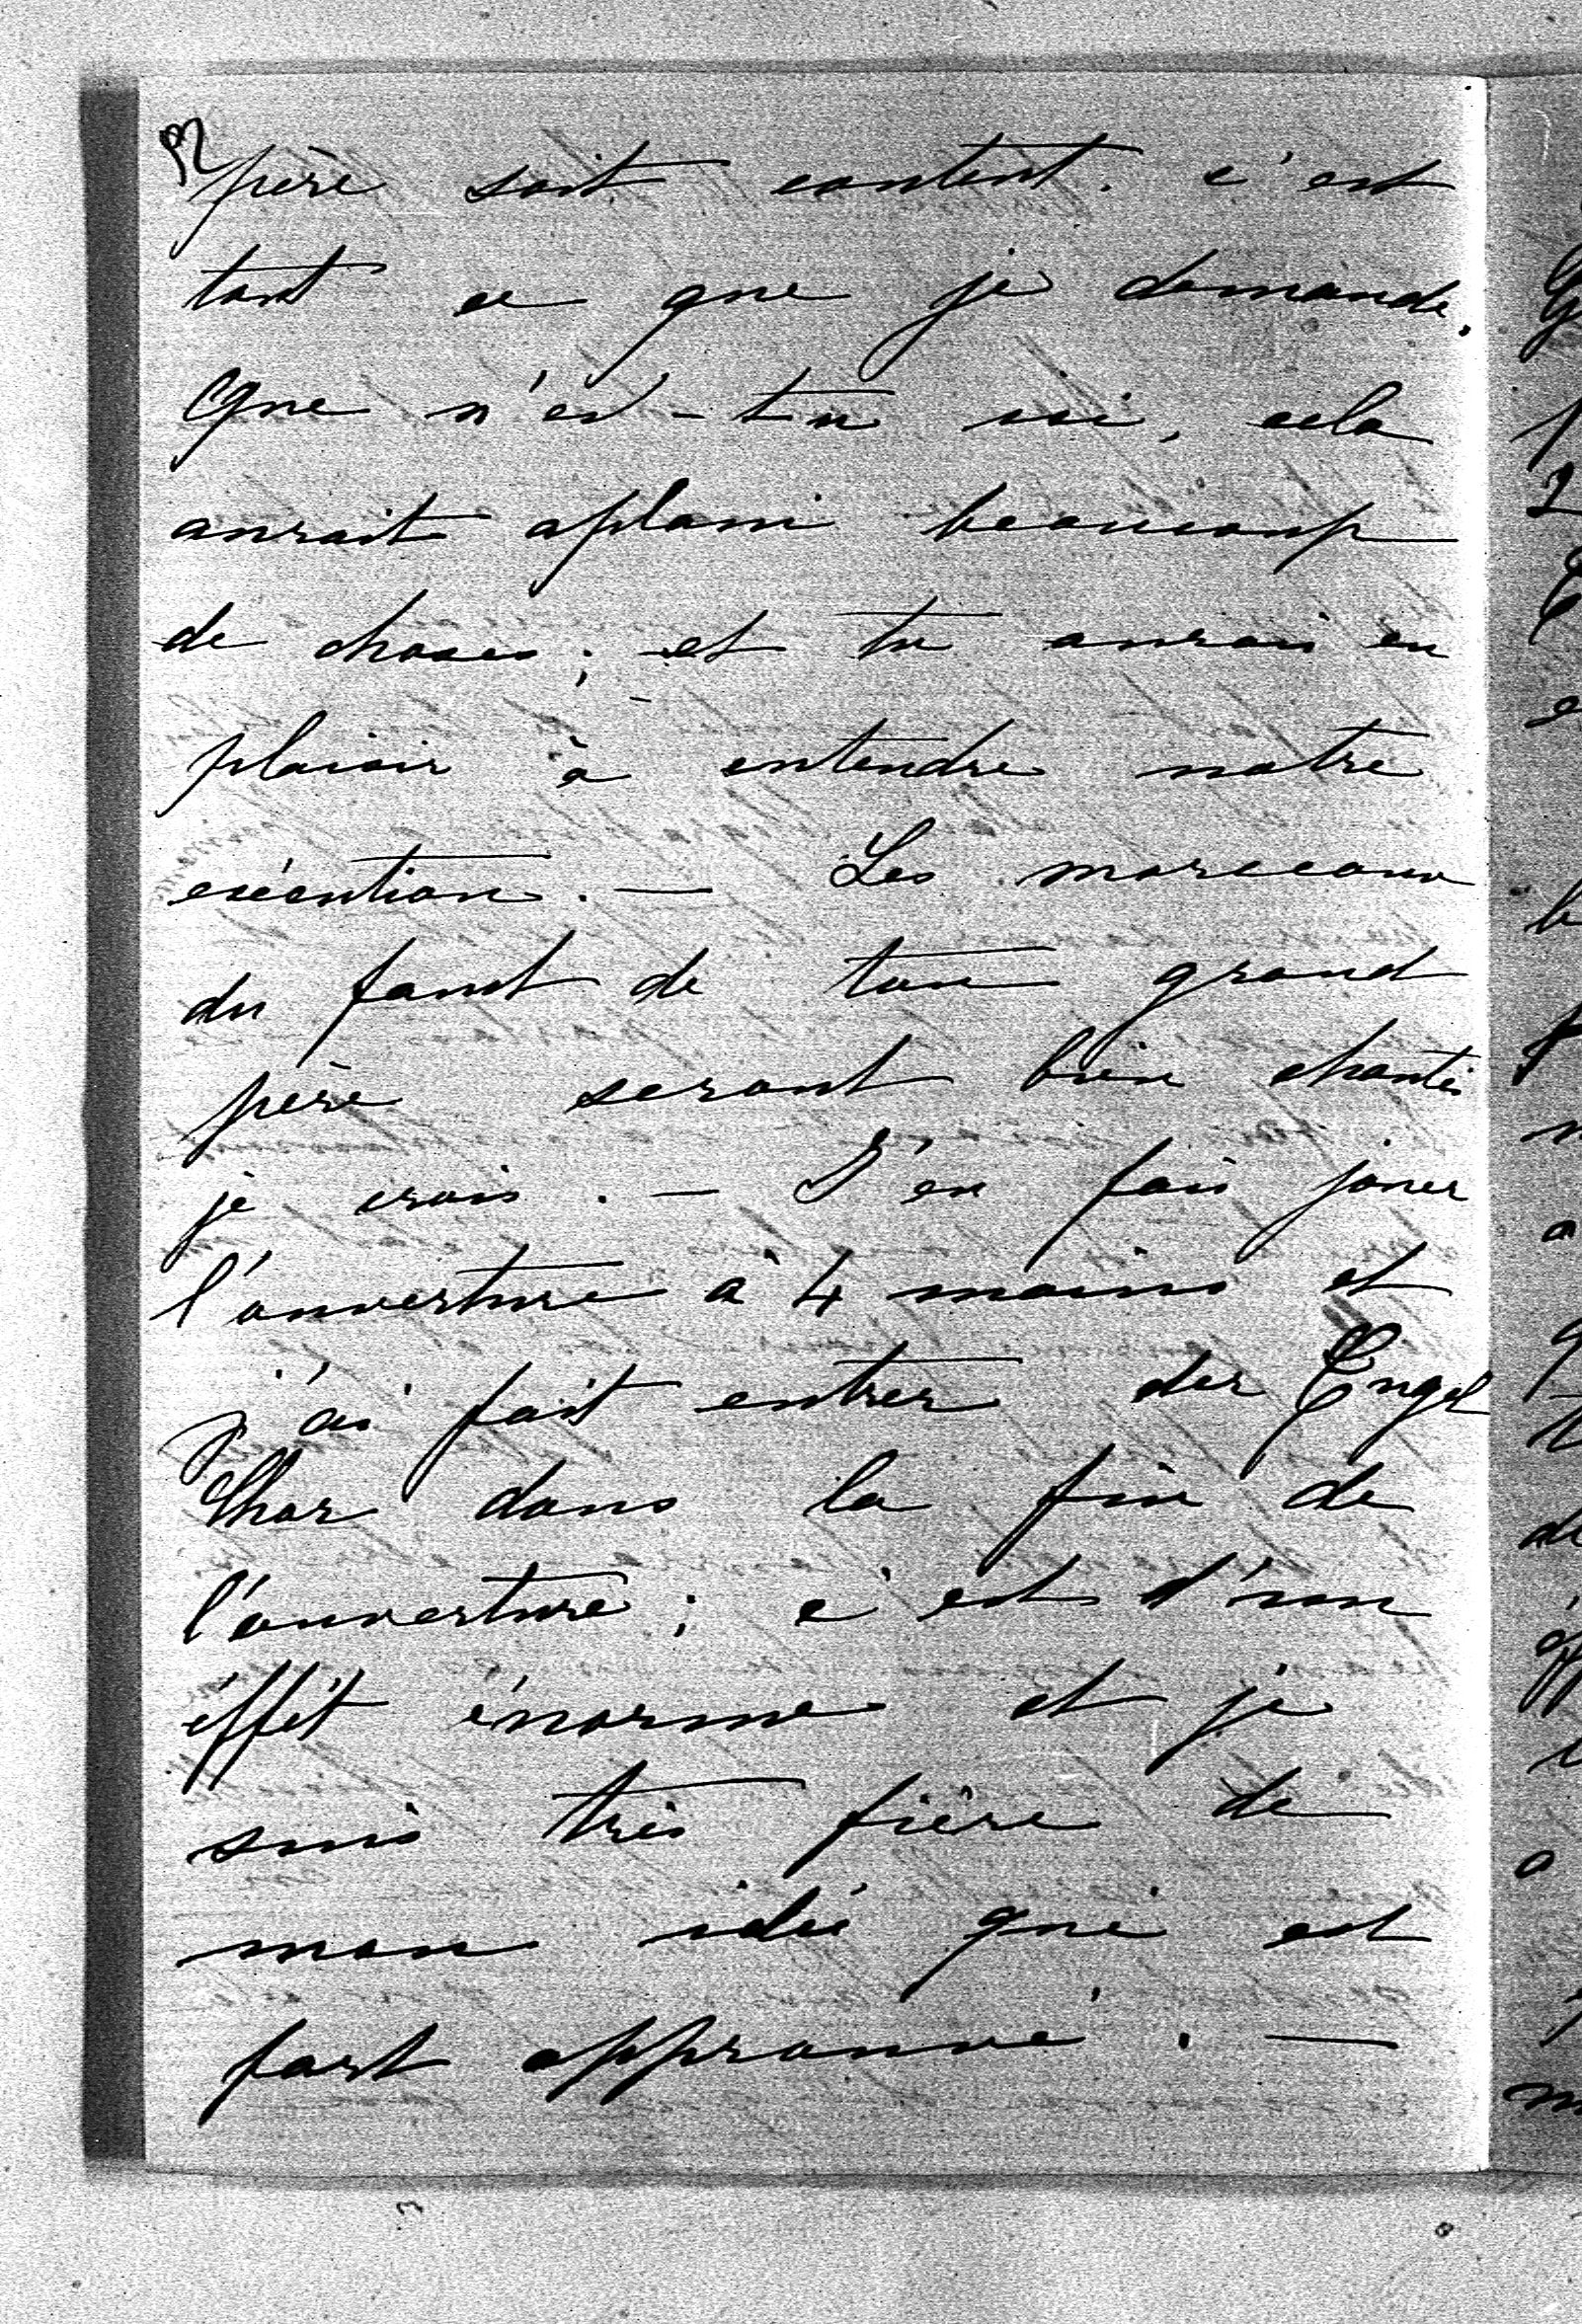 père soit content. c'est
tout ce que je demande.
Que n'es-tu ici, cela
aurait aplani beaucoup
de choses ; et tu aurais eu
plaisir à entendre notre
exécution. — Les morceaux
du faust de ton grand
père seront bien chantés
je crois. — J'en fais jouer
l'ouverture à 4 mains et
j'ai fait entrer der Engel
Chor dans la fin de
l'ouverture ; c'est d'un
éffet énorme et je
suis très fière de
mon idée qui est
fort approuvé. —